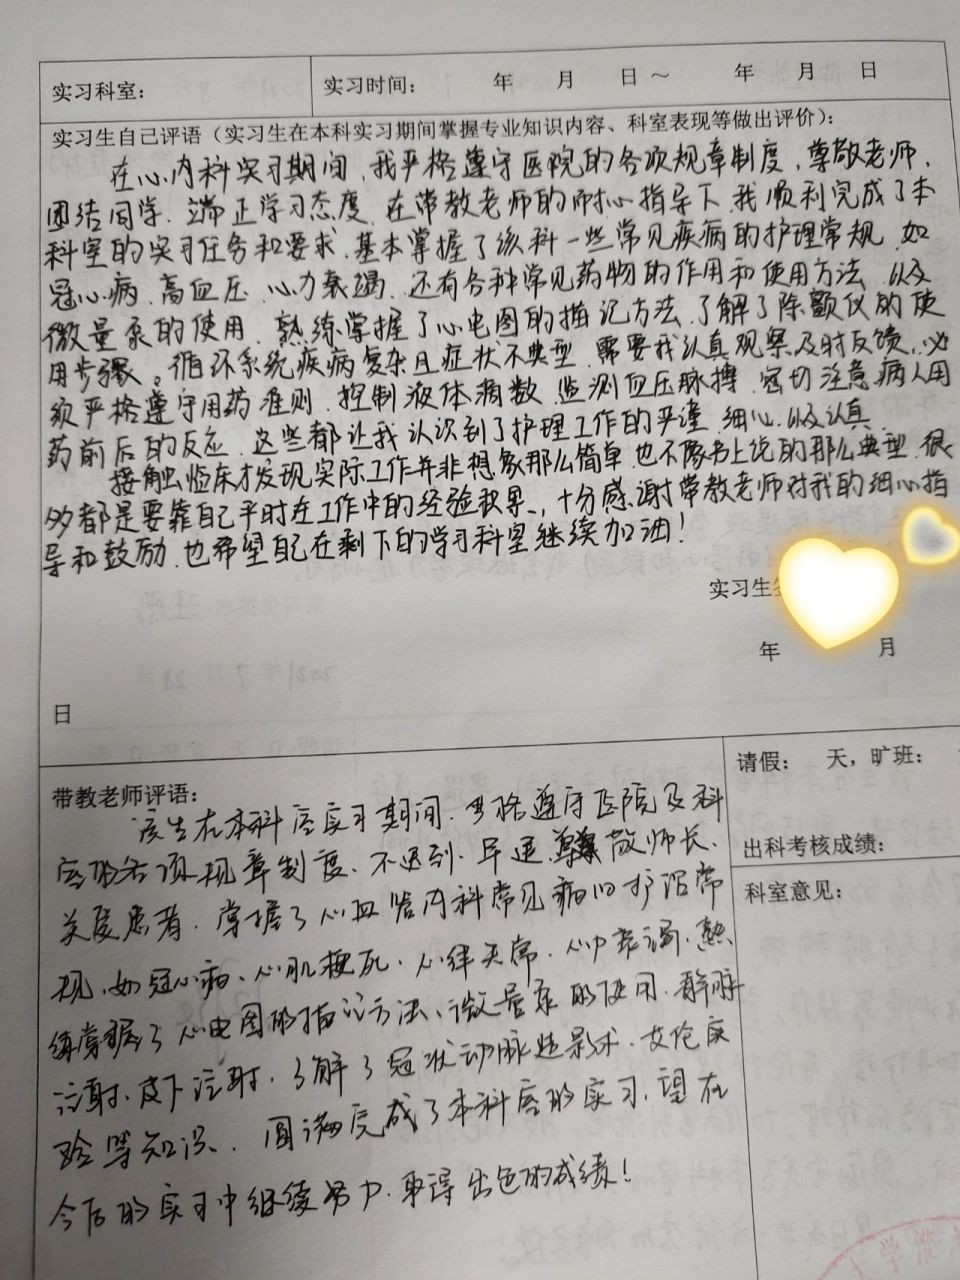 实习科室：
实习时间： 年 月 日 ～ 年 月 日
实习生自己评语（实习生在本科实习期间掌握专业知识内容、科室表现等做出评价）：
在心内科实习期间，我严格遵守医院的各项规章制度，尊敬老师，
团结同学，端正学习态度，在带教老师的耐心指导下，我顺利完成了本
科室的实习任务和要求，基本掌握了该科一些常见疾病的护理常规，如
冠心病、高血压、心力衰竭，还有各种常见药物的作用和使用方法，以及
微量泵的使用，熟练掌握了心电图的描记方法，了解了除颤仪的使
用步骤。循环系统疾病复杂且症状不典型，需要我认真观察及时反馈，必
须严格遵守用药准则，控制液体滴数，监测血压脉搏，密切注意病人用
药前后的反应，这些都让我认识到了护理工作的严谨，细心以及认真
接触临床才发现实际工作并非想象那么简单，也不像书上说的那么典型，很
多都是要靠自己平时在工作中的经验积累，十分感谢带教老师对我的细心指
导和鼓励，也希望自己在剩下的学习科室继续加油！
实习生
年 月
日
带教老师评语：
该生在本科室实习期间，严格遵守医院及科
室的各项规章制度，不迟到、早退，尊敬师长、
关爱患者，掌握了心血管内科常见病的护理常
规，如冠心病、心肌梗死、心律失常、心力衰竭，熟
练掌握了心电图的描记方法、微量泵的使用、静脉
注射、皮下注射，了解了冠状动脉造影术、艾伦实
验等知识，圆满完成了本科室的实习，望在
今后的实习中继续努力，取得出色的成绩！
请假： 天，旷班：
出科考核成绩：
科室意见：